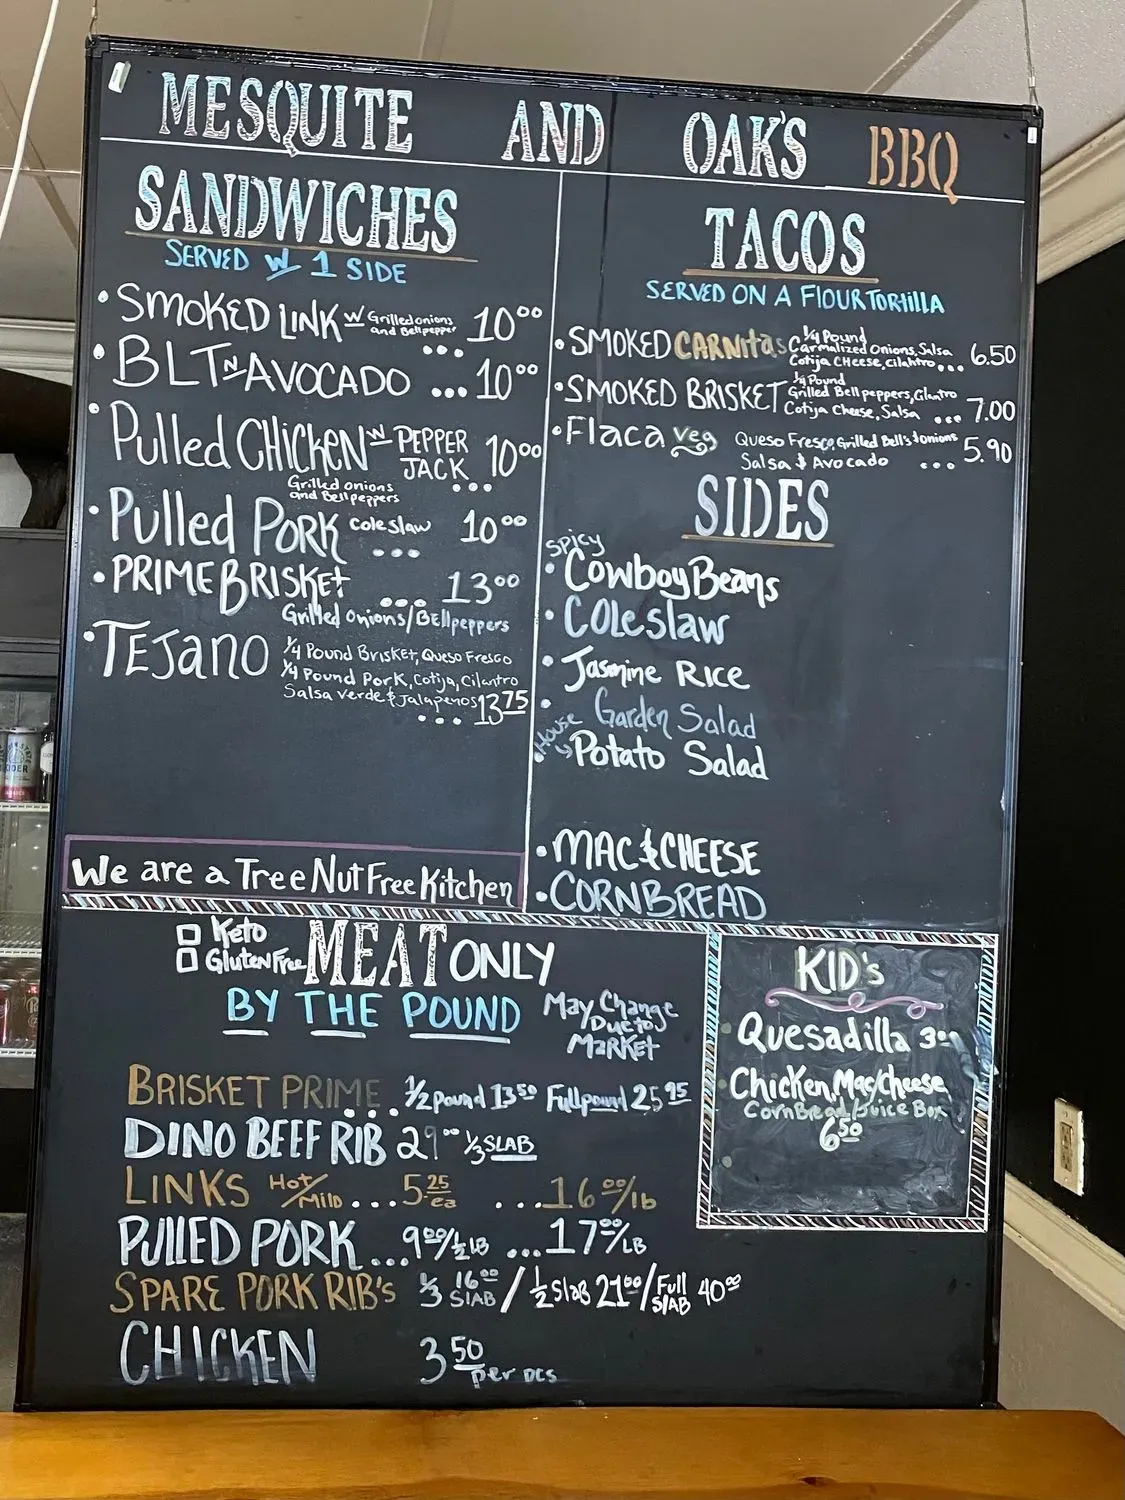 MESQUITE AND OAK'S BBQ
SANDWICHES
SERVED W/ 1 SIDE
• SMOKED LINK W/ Grilled onions and Bellpepper ... 10⁰⁰
• BLT N AVOCADO ... 10⁰⁰
• Pulled CHICKEN W/ PEPPER JACK ... 10⁰⁰
Grilled onions
and Bellpeppers
• Pulled PORK Coleslaw ... 10⁰⁰
• PRIME BRISKET ... 13⁰⁰
Grilled Onions/Bellpeppers
• TEJANO 1/4 Pound Brisket, Queso Fresco
1/4 Pound Pork, Cotija, Cilantro
Salsa Verde & Jalapenos ... 13⁷⁵
We are a Tree Nut Free Kitchen
TACOS
SERVED ON A FlOUR TORtillA
• SMOKED CARNitas 1/4 Pound
Carmalized Onions, Salsa
Cotija CHeese, Cilahtro ... 6.50
• SMOKED BRISKET 1/4 Pound
Grilled Bellpeppers, Cilantro
Cotija Cheese, Salsa ... 7.00
• Flaca veg Queso Fresco, Grilled Bell's & onions
Salsa & Avocado ... 5.90
SIDES
SPICY
• Cowboy Beans
• Coleslaw
• Jasmine Rice
• Garden Salad
House
• Potato Salad
• MAC & CHEESE
• CORNBREAD
Keto
Gluten Free
MEAT ONLY
BY THE POUND
May Change
Due to
MARKET
BRISKET PRIME ... 1/2 pound 13⁵⁰ Full pound 25⁹⁵
DINO BEEF RIB 29⁰⁰ 1/3 SLAB
LINKS Hot/Mild ... 5²⁵ ea ... 16⁰⁰/lb
PULLED PORK ... 9⁰⁰/½ LB ... 17⁰⁰/LB
SPARE PORK RIB's 1/3 16⁰⁰ SLAB / 1/2 Slab 21⁰⁰ / Full SLAB 40⁰⁰
CHICKEN 3⁵⁰ per pcs
KID's
Quesadilla 3⁰⁰
Chicken, Mac/Cheese
CornBread/Juice Box
6⁵⁰